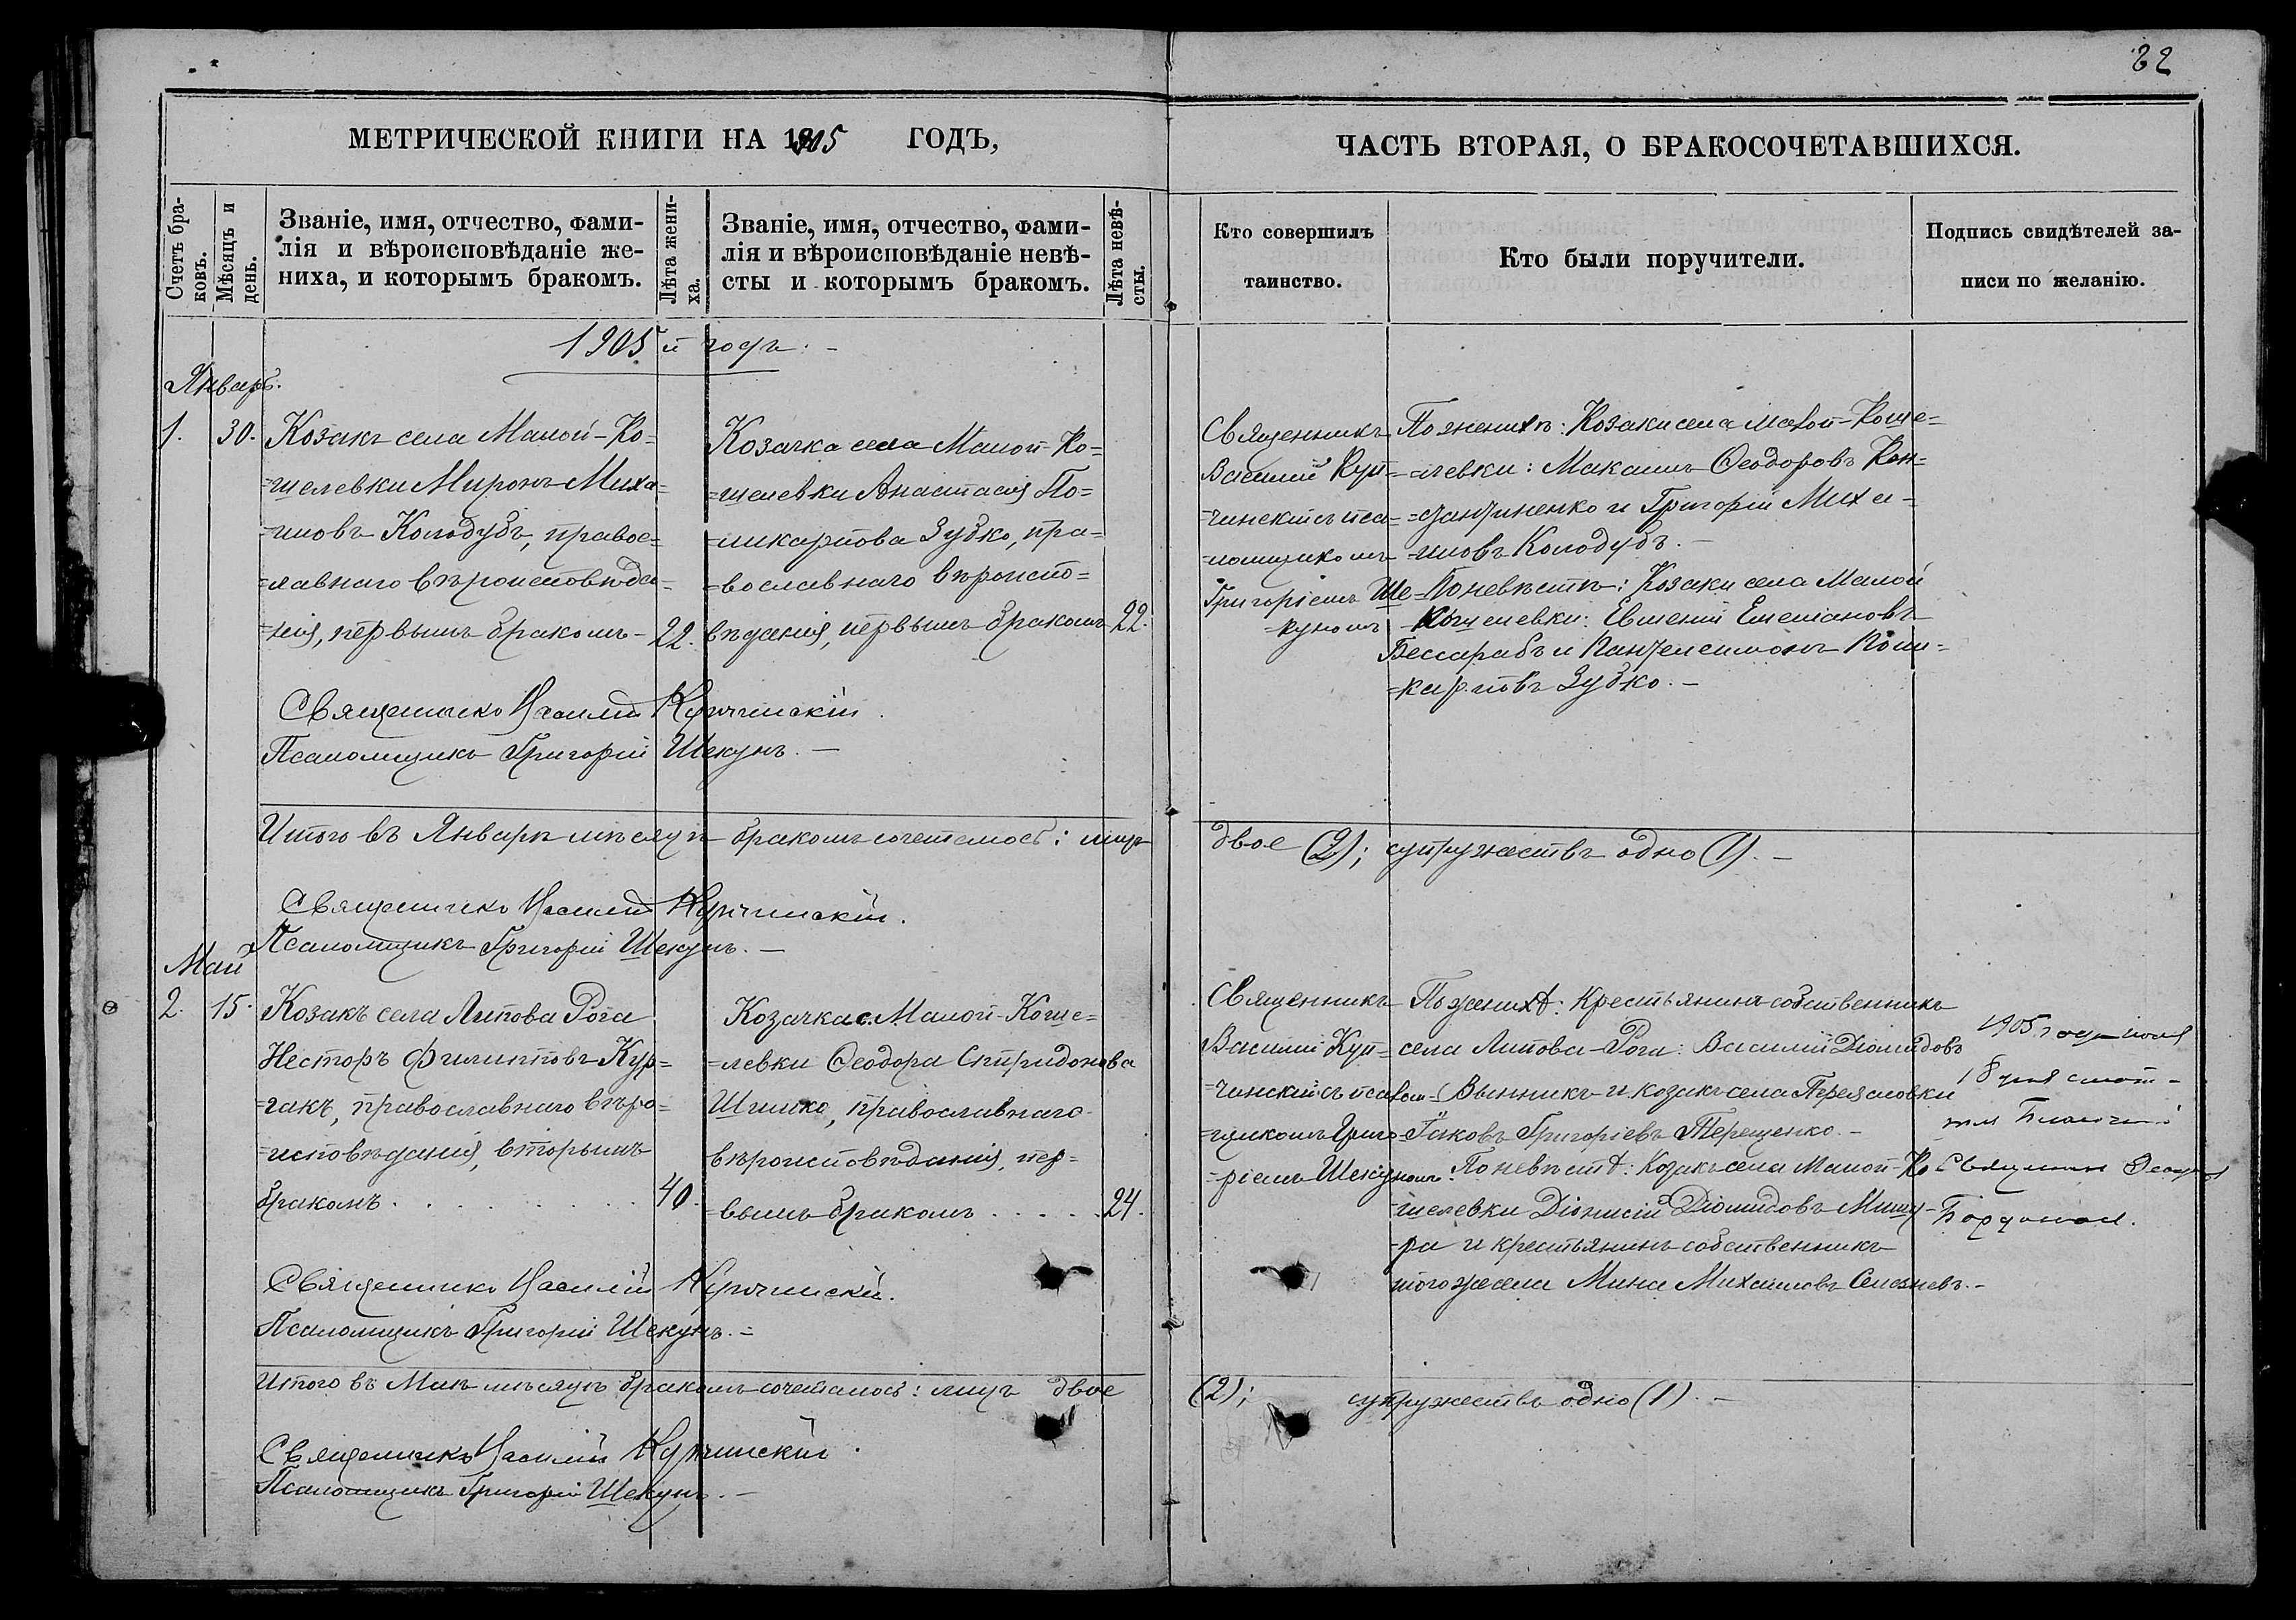 22
МЕТРИЧЕСКОЙ КНИГИ НА 1905 ГОДЪ,
ЧАСТЬ ВТОРАЯ, О БРАКОСОЧЕТАВШИХСЯ.
Счетъ бра-
ковъ.
Мѣсяцъ и
день.
Званіе, имя, отчество, фами-
лія и вѣроисповѣданіе же-
ниха, и которымъ бракомъ.
Лѣта жени-
ха.
Званіе, имя, отчество, фами-
лія и вѣроисповѣданіе невѣ-
сты и которымъ бракомъ.
Лѣта невѣ-
сты.
Кто совершилъ
таинство.
Кто были поручители.
Подпись свидѣтелей за-
писи по желанію.
1905 й годъ. –
Январь.
1. 30.
Козакъ села Малой-Ко=
=шелевки Миронъ Миха=
=иловъ Колодубъ, правос=
=лавнаго вѣроисповѣда=
=нія, первымъ бракомъ – 22.
Козачка села Малой-Ко=
=шелевки Анастасія По=
=ликарпова Зубко, пра=
=вославнаго вѣроиспо=
вѣданія, первымъ бракомъ 22.
Священникъ
Василій Куп=
=чинскій съ пса=
=ломщикомъ
Григоріемъ Ше=
=куномъ
По женихѣ: Козаки села Малой-Коше=
=левки: Макаимъ Ѳеодоровъ Кон=
=дратенко и Григорій Миха=
=иловъ Колодубъ. –
По невѣстѣ: Козаки села Малой
Кошелевки: Евменій Емеліановъ
Бессарабъ и Пантелеимонъ Поли=
=карповъ Зубко. –
Священникъ Василій Купчинскій.
Псаломщикъ Григорій Шекунъ. –
Итого въ Январѣ мѣсяцѣ бракомъ сочеталось: лицъ двое (2); супружествъ одно (1). –
Священникъ Василій Купчинскій.
Псаломщикъ Григорій Шекунъ. –
Май
2. 15.
Козакъ села Липова Рога
Несторъ Филипповъ Кур=
=гакъ, православнаго вѣро=
=исповѣданія, вторымъ
бракомъ . . . . . . . 40.
Козачка с. Малой-Коше=
=левки Ѳеодора Спиридонова
Шишко, православнаго
вѣроисповѣданія, пер=
=вымъ бракомъ . . . . . 24.
Священникъ
Василій Куп=
=чинскій съ псалом=
=щикомъ Григо=
=ріемъ Шекуномъ.
По женихѣ: Крестьянинъ собственникъ
села Липова-Рога: Василій Діомидовъ
Вынникъ и козакъ села Переясловки
Іаковъ Григоріевъ Терещенко. –
По невѣстѣ: Козакъ села Малой-Ко
=шелевки Діонисій Діомидовъ Мишу-
=ра и крестьянинъ собственникъ
того же села Мина Михаиловъ Селезневъ. –
1905 года
18 дня
Бордоносъ.
Священникъ Василій Купчинскій.
Псаломщикъ Григорій Шекунъ. =
Итого въ Маѣ мѣсяцѣ бракомъ сочеталось: лицъ двое (2); супружествъ одно (1). –
Священникъ Василій Купчинскій.
Псаломщикъ Григорій Шекунъ. –